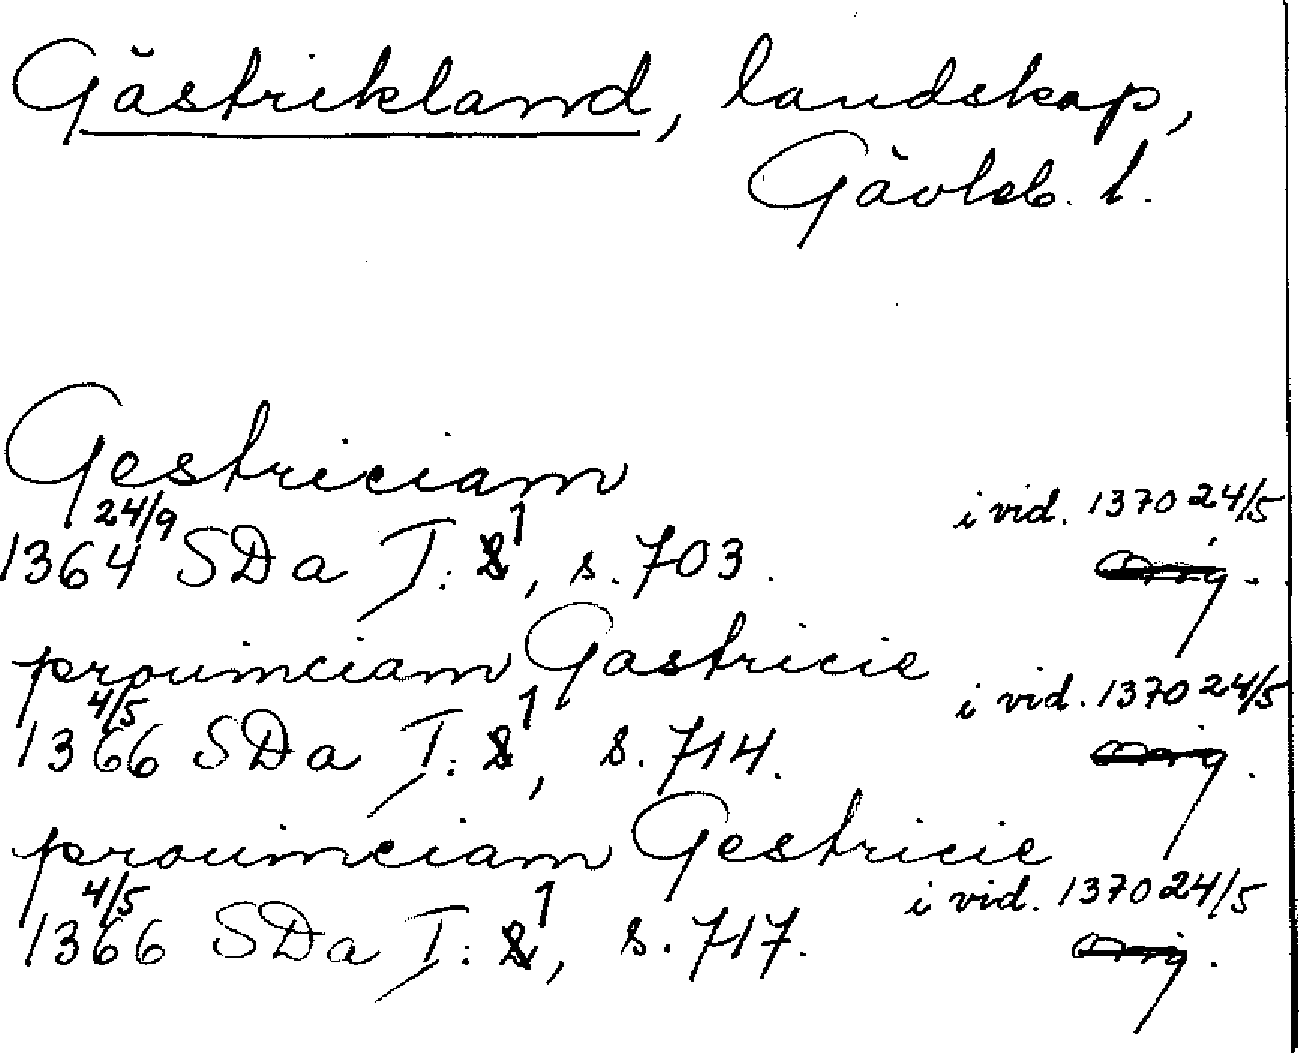 Gästrikland, landskap,
Gävleb. l.
Gestriciam
1364 24/9 SDa I: 1, s. 703. i vid. 1370 24/5
orig.
prouinciam Gastricie
1366 4/5 SDa I: 1, s. 714. i vid. 1370 24/5
orig.
prouinciam Gestricie
1366 4/5 SDa I: 1, s. 717. i vid. 1370 24/5
orig.